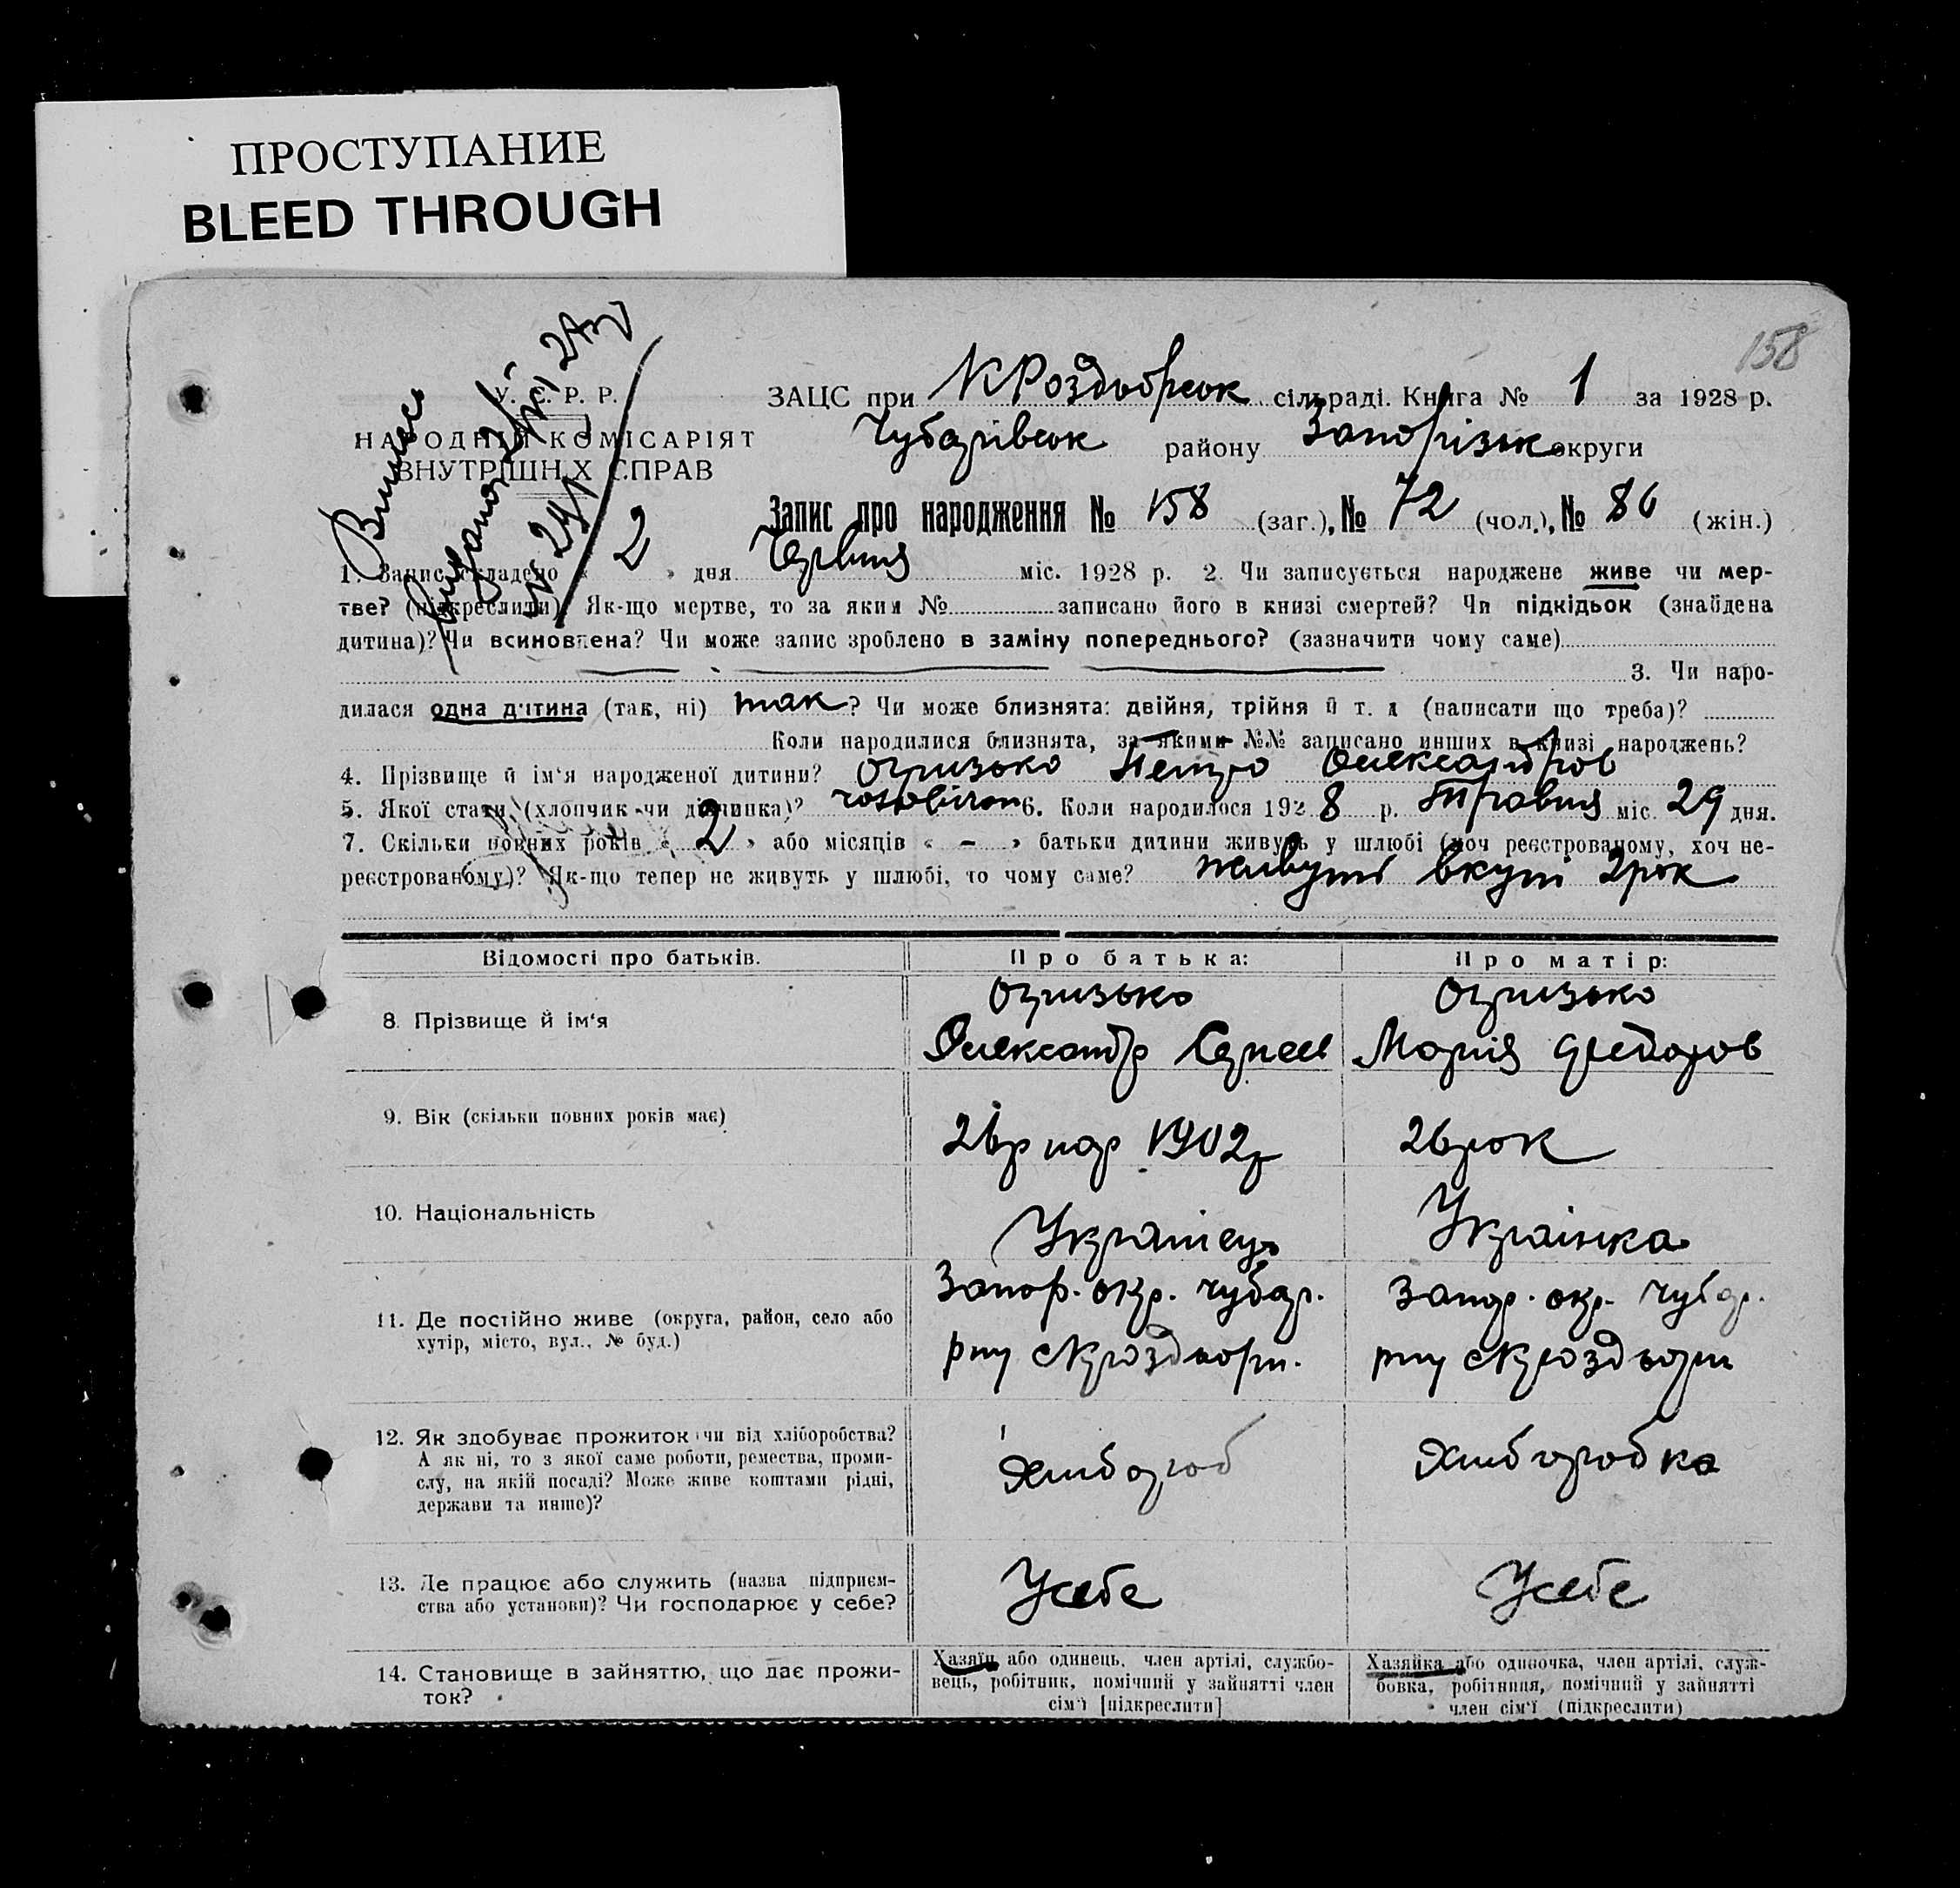 ПРОСТУПАНИЕ
BLEED THROUGH
158
У. С. Р. Р.
НАРОДНІЙ КОМІСАРІЯТ
ВНУТРІШНІХ СПРАВ
Виписъ
ЗАЦС при КРоздорськ сільраді. Книга № 1 за 1928 р.
Чубарівськ району Запорізьк округи
Запис про народження № 158 (заг.), № 72 (чол.), № 86 (жін.)
1. Запис складено « 2 » дня Червня міс. 1928 р. 2. Чи записується народжене живе чи мер-
тве? (підкреслити). Як-що мертве, то за яким № записано його в книзі смертей? Чи підкідьок (знайдена
дитина)? Чи всиновлена? Чи може запис зроблено в заміну попереднього? (зазначити чому саме)
3. Чи наро-
дилася одна дитина (так, ні) так ? Чи може близнята: двійня, трійня й т. д (написати що треба)?
Коли народилися близнята, за якими №№ записано инших в книзі народжень?
4. Прізвище й ім'я народженої дитини? Огризько Петро Олександров
5. Якої стати (хлопчик чи дівчинка)? 6. Коли народилося 192 8 р. Травня міс. 29 дня.
7. Скільки повних років « 2 » або місяців « – » батьки дитини живуть у шлюбі (хоч реєстрованому, хоч не-
реєстрованому)? Як-що тепер не живуть у шлюбі, то чому саме? живуть вкупі 2рок
Відомості про батьків.
Про батька:
Про матір:
8. Прізвище й ім'я
Огризько
Олександр Сергеев
Огризько
Марія Федоров
9. Вік (скільки повних років має)
26р нар 1902р
26рок
10. Національність
Українець
Українка
11. Де постійно живе (округа, район, село або
хутір, місто, вул., № буд.)
Запор. окр. чубар.
рну сКроздори.
Запор. окр. Чубар.
рну сКроздори
12. Як здобуває прожиток чи від хліборобства?
А як ні, то з якої саме роботи, ремества, проми-
слу, на якій посаді? Може живе коштами рідні,
держави та инше)?
Хлибороб
Хлиборобка
13. Де працює або служить (назва підприєм-
ства або установи)? Чи господарює у себе?
Усебе
Усебе
14. Становище в зайняттю, що дає прожи-
ток?
Хазяїн або одинець, член артілі, службо-
вець, робітник, помічний у зайнятті член
сім'ї [підкреслити]
Хазяйка або одиночка, член артілі, служ-
бовка, робітниця, помічний у зайнятті
член сім'ї (підкреслити)